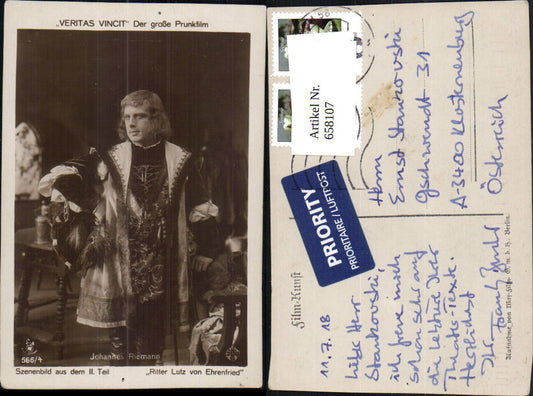 „VERITAS VINCIT" Der große Prunkfilm
566/4
Johannes Riemann
Szenenbild aus dem II. Teil
„Ritter Lutz von Ehrenfried"
Artikel Nr.
658107
PRIORITY
PRIORITAIRE / LUFTPOST
Herrn
Ernst Stankovski
Gschwendt 31
A-3400 Klosterneuburg
Österreich
Film-Kunst
11.7.18
Lieber Herr
Stankovski,
ich freue mich
schon sehr auf
die Letzten Ihrer
Theater-Texte.
Herzlichst
Ihr